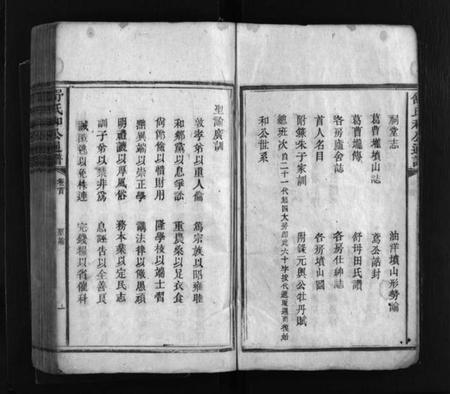 祠堂志
油洋墳山形勢論
葛曹壠墳山誌
鳶丕誥封
葛曹壠傳
舒母田氏讚
各房廬舍誌
各房仕紳志
首人名目
各房墳山圖
附錄朱子家訓
附錄元輿公牡丹賦
總班次
和公世系
聖諭廣訓
敦孝弟以重人倫
篤宗族以昭雍睦
和鄉黨以息爭訟
重農桑以足衣食
尙節儉以惜財用
隆學校以端士習
黜異端以崇正學
講法律以儆愚頑
明禮讓以厚風俗
務本業以定民志
訓子弟以禁非爲
息誣告以全善良
誡匿逃以免株連
完錢糧以省催科
舒氏和公通譜
卷首